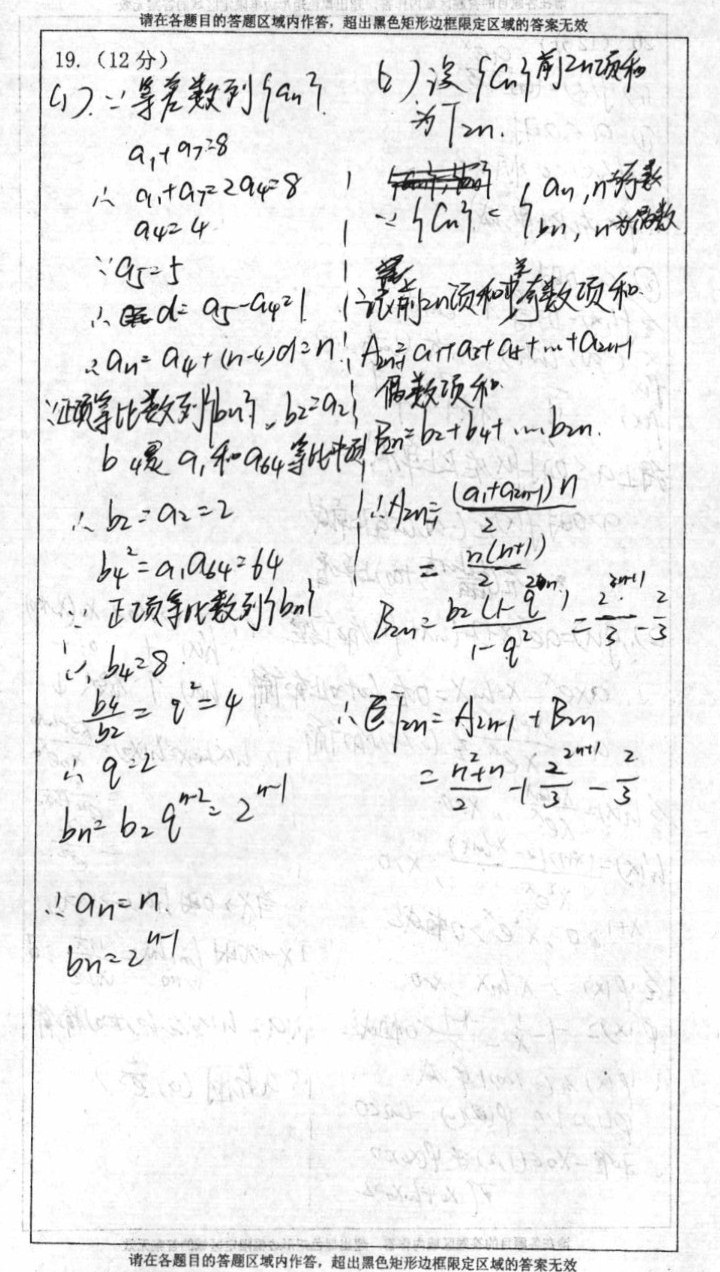 请在各题目的答题区域内作答，超出黑色矩形边框限定区域的答案无效
19.（12分）
(1) ∵等差数列{an}
a₁+a₇=8
∴ a₁+a₇=2a₄=8
a₄=4
∵a₅=5
∴ d=a₅-a₄=1
∴an=a₄+(n-4)d=n
∵正项等比数列{bn}, b₂=a₂
b₄是a₁和a₆₄等比中项
∴ b₂=a₂=2
b₄²=a₁a₆₄=64
∵ 正项等比数列{bn}
∴ b₄=8
b₄/b₂=q²=4
∴ q=2
bn=b₂q^(n-2)=2^(n-1)
∴an=n
bn=2^(n-1)
)设{Cn}前2n项和
为T₂n.
∵{Cn}={an, n为奇数
bn, n为偶数
设前2n项和中奇数项和
A₂n-₁=a₁+a₃+a₅+…+a₂n-₁
偶数项和
B₂n=b₂+b₄+…b₂n.
∴A₂n-₁=(a₁+a₂n-₁)n/2
=n(n+1)/2
B₂n=b₂(1-q^(2n))/(1-q²)=2^(2n+1)/3-2/3
∴T₂n=A₂n-₁+B₂n
=(n²+n)/2+2^(2n+1)/3-2/3
请在各题目的答题区域内作答，超出黑色矩形边框限定区域的答案无效